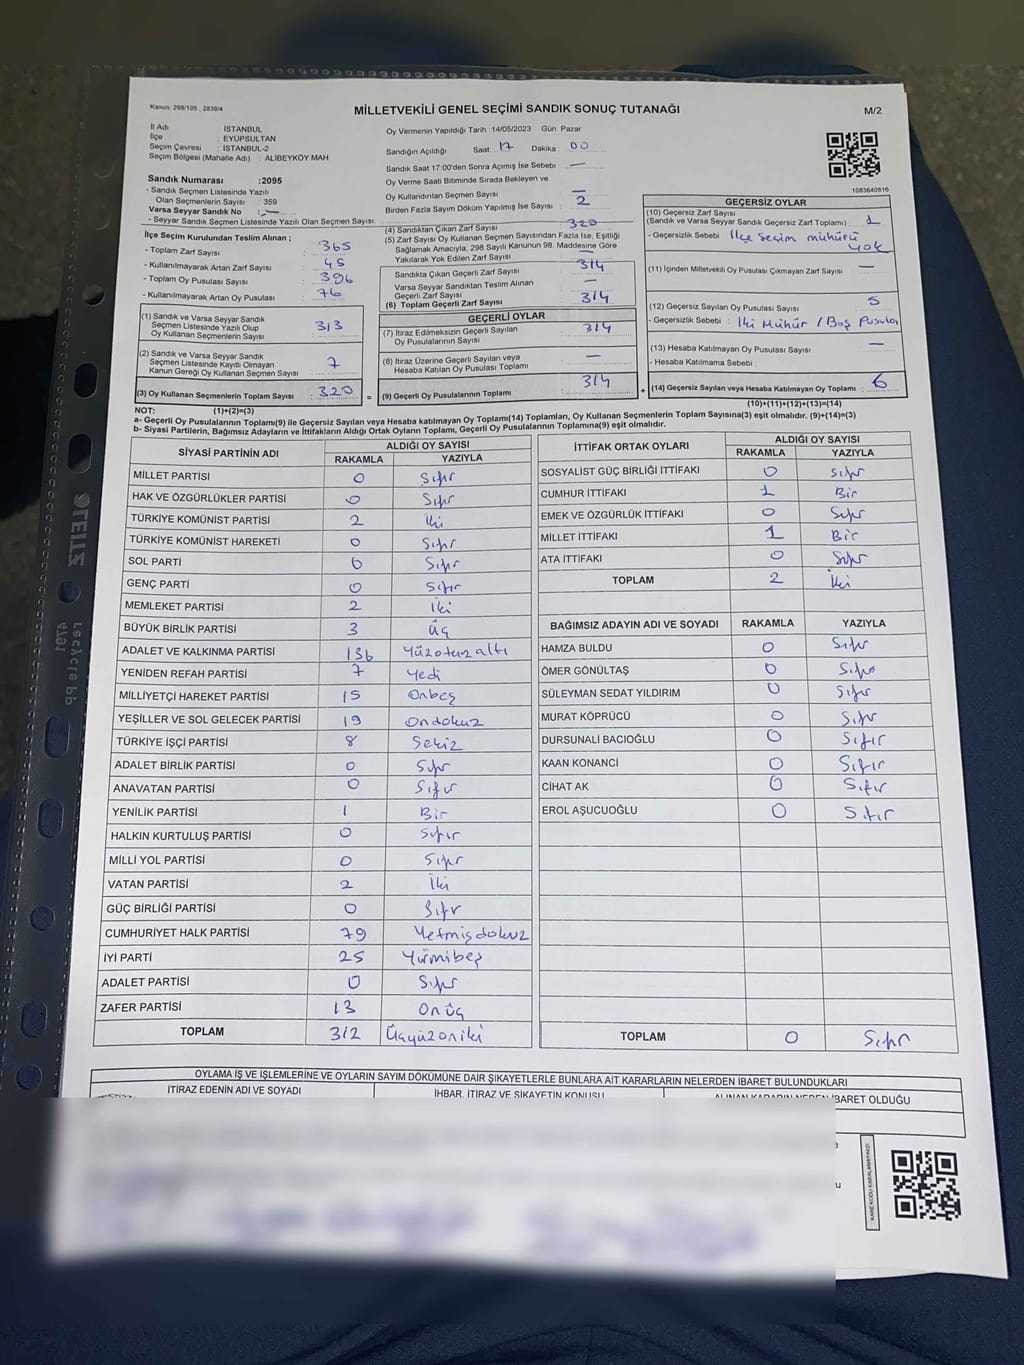 Kanun: 298/105 , 2839/4
MİLLETVEKİLİ GENEL SEÇİMİ SANDIK SONUÇ TUTANAĞI
M/2
İl Adı : İSTANBUL
İlçe : EYÜPSULTAN
Seçim Çevresi : İSTANBUL-2
Seçim Bölgesi (Mahalle Adı) : ALİBEYKÖY MAH
Sandık Numarası :2095
- Sandık Seçmen Listesinde Yazılı
Olan Seçmenlerin Sayısı : 359
Varsa Seyyar Sandık No : —
- Seyyar Sandık Seçmen Listesinde Yazılı Olan Seçmen Sayısı:
Oy Vermenin Yapıldığı Tarih :14/05/2023 Gün: Pazar
Sandığın Açıldığı Saat: 17 Dakika: 00
Sandık Saat 17:00'den Sonra Açımış İse Sebebi : —
Oy Verme Saati Bitiminde Sırada Bekleyen ve
Oy Kullandırılan Seçmen Sayısı : —
Birden Fazla Sayım Döküm Yapılmış İse Sayısı : 2
1083640816
İlçe Seçim Kurulundan Teslim Alınan ;
- Toplam Zarf Sayısı : 365
- Kullanılmayarak Artan Zarf Sayısı : 45
- Toplam Oy Pusulası Sayısı : 396
- Kullanılmayarak Artan Oy Pusulası : 76
(1) Sandık ve Varsa Seyyar Sandık
Seçmen Listesinde Yazılı Olup
Oy Kullanan Seçmenlerin Sayısı : 313
(2) Sandık ve Varsa Seyyar Sandık
Seçmen Listesinde Kayıtlı Olmayan
Kanun Gereği Oy Kullanan Seçmen Sayısı : 7
(3) Oy Kullanan Seçmenlerin Toplam Sayısı : 320
(4) Sandıktan Çıkan Zarf Sayısı : 320
(5) Zarf Sayısı Oy Kullanan Seçmen Sayısından Fazla İse, Eşitliği
Sağlamak Amacıyla, 298 Sayılı Kanunun 98. Maddesine Göre
Yakılarak Yok Edilen Zarf Sayısı : —
Sandıkta Çıkan Geçerli Zarf Sayısı : 314
Varsa Seyyar Sandıktan Teslim Alınan
Geçerli Zarf Sayısı : —
(6) Toplam Geçerli Zarf Sayısı : 314
GEÇERLİ OYLAR
(7) İtiraz Edilmeksizin Geçerli Sayılan
Oy Pusulalarının Sayısı : 314
(8) İtiraz Üzerine Geçerli Sayılan veya
Hesaba Katılan Oy Pusulası Toplamı : —
= (9) Geçerli Oy Pusulalarının Toplamı : 314
GEÇERSİZ OYLAR
(10) Geçersiz Zarf Sayısı
(Sandık ve Varsa Seyyar Sandık Geçersiz Zarf Toplamı) : 1
- Geçersizlik Sebebi : İlçe seçim mühürü
yok
(11) İçinden Milletvekili Oy Pusulası Çıkmayan Zarf Sayısı : —
(12) Geçersiz Sayılan Oy Pusulası Sayısı : 5
- Geçersizlik Sebebi : İki Mühür / Boş Pusula
(13) Hesaba Katılmayan Oy Pusulası Sayısı : —
- Hesaba Katılmama Sebebi :
+ (14) Geçersiz Sayılan veya Hesaba Katılmayan Oy Toplamı : 6
(10)+(11)+(12)+(13)=(14)
NOT: (1)+(2)=(3)
a- Geçerli Oy Pusulalarının Toplamı(9) ile Geçersiz Sayılan veya Hesaba katılmayan Oy Toplamı(14) Toplamları, Oy Kullanan Seçmenlerin Toplam Sayısına(3) eşit olmalıdır. (9)+(14)=(3)
b- Siyasi Partilerin, Bağımsız Adayların ve İttifakların Aldığı Ortak Oyların Toplamı, Geçerli Oy Pusulalarının Toplamına(9) eşit olmalıdır.
SİYASİ PARTİNİN ADI ALDIĞI OY SAYISI
RAKAMLA YAZIYLA
MİLLET PARTİSİ 0 Sıfır
HAK VE ÖZGÜRLÜKLER PARTİSİ 0 Sıfır
TÜRKİYE KOMÜNİST PARTİSİ 2 İki
TÜRKİYE KOMÜNİST HAREKETİ 0 Sıfır
SOL PARTİ 0 Sıfır
GENÇ PARTİ 0 Sıfır
MEMLEKET PARTİSİ 2 İki
BÜYÜK BİRLİK PARTİSİ 3 Üç
ADALET VE KALKINMA PARTİSİ 136 Yüzotuzaltı
YENİDEN REFAH PARTİSİ 7 Yedi
MİLLİYETÇİ HAREKET PARTİSİ 15 Onbeş
YEŞİLLER VE SOL GELECEK PARTİSİ 19 Ondokuz
TÜRKİYE İŞÇİ PARTİSİ 8 Sekiz
ADALET BİRLİK PARTİSİ 0 Sıfır
ANAVATAN PARTİSİ 0 Sıfır
YENİLİK PARTİSİ 1 Bir
HALKIN KURTULUŞ PARTİSİ 0 Sıfır
MİLLİ YOL PARTİSİ 0 Sıfır
VATAN PARTİSİ 2 İki
GÜÇ BİRLİĞİ PARTİSİ 0 Sıfır
CUMHURİYET HALK PARTİSİ 79 Yetmişdokuz
İYİ PARTİ 25 Yirmibeş
ADALET PARTİSİ 0 Sıfır
ZAFER PARTİSİ 13 Onüç
TOPLAM 312 Üçyüzoniki
İTTİFAK ORTAK OYLARI ALDIĞI OY SAYISI
RAKAMLA YAZIYLA
SOSYALİST GÜÇ BİRLİĞİ İTTİFAKI 0 Sıfır
CUMHUR İTTİFAKI 1 Bir
EMEK VE ÖZGÜRLÜK İTTİFAKI 0 Sıfır
MİLLET İTTİFAKI 1 Bir
ATA İTTİFAKI 0 Sıfır
TOPLAM 2 İki
BAĞIMSIZ ADAYIN ADI VE SOYADI RAKAMLA YAZIYLA
HAMZA BULDU 0 Sıfır
ÖMER GÖNÜLTAŞ 0 Sıfır
SÜLEYMAN SEDAT YILDIRIM 0 Sıfır
MURAT KÖPRÜCÜ 0 Sıfır
DURSUNALİ BACIOĞLU 0 Sıfır
KAAN KONANCİ 0 Sıfır
CİHAT AK 0 Sıfır
EROL AŞUCUOĞLU 0 Sıfır
TOPLAM 0 Sıfır
OYLAMA İŞ VE İŞLEMLERİNE VE OYLARIN SAYIM DÖKÜMÜNE DAİR ŞİKAYETLERLE BUNLARA AİT KARARLARIN NELERDEN İBARET BULUNDUKLARI
İTİRAZ EDENİN ADI VE SOYADI
İHBAR, İTİRAZ VE ŞİKAYETİN KONUSU
ALINAN KARARIN NEDEN İBARET OLDUĞU
KAREKODU KARALAMAYINIZ!
LEITZ
recycle pp
4791